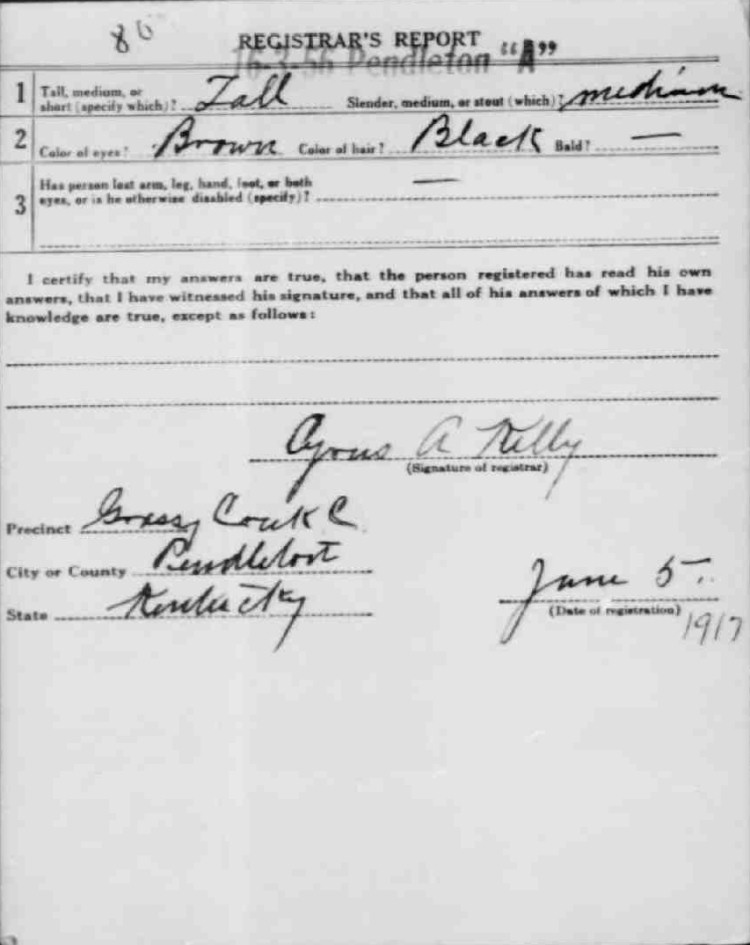 86
REGISTRAR'S REPORT
16-3-56 Pendleton "A"
1 Tall, medium, or short (specify which)? Tall Slender, medium, or stout (which)? medium
2 Color of eyes? Brown Color of hair? Black Bald? —
3 Has person lost arm, leg, hand, foot, or both
eyes, or is he otherwise disabled (specify)? —
I certify that my answers are true, that the person registered has read his own
answers, that I have witnessed his signature, and that all of his answers of which I have
knowledge are true, except as follows:
Cyrus A Kelly
(Signature of registrar)
Precinct Grassy C
City or County Pendleton
State Kentucky
June 5.
(Date of registration)
1917